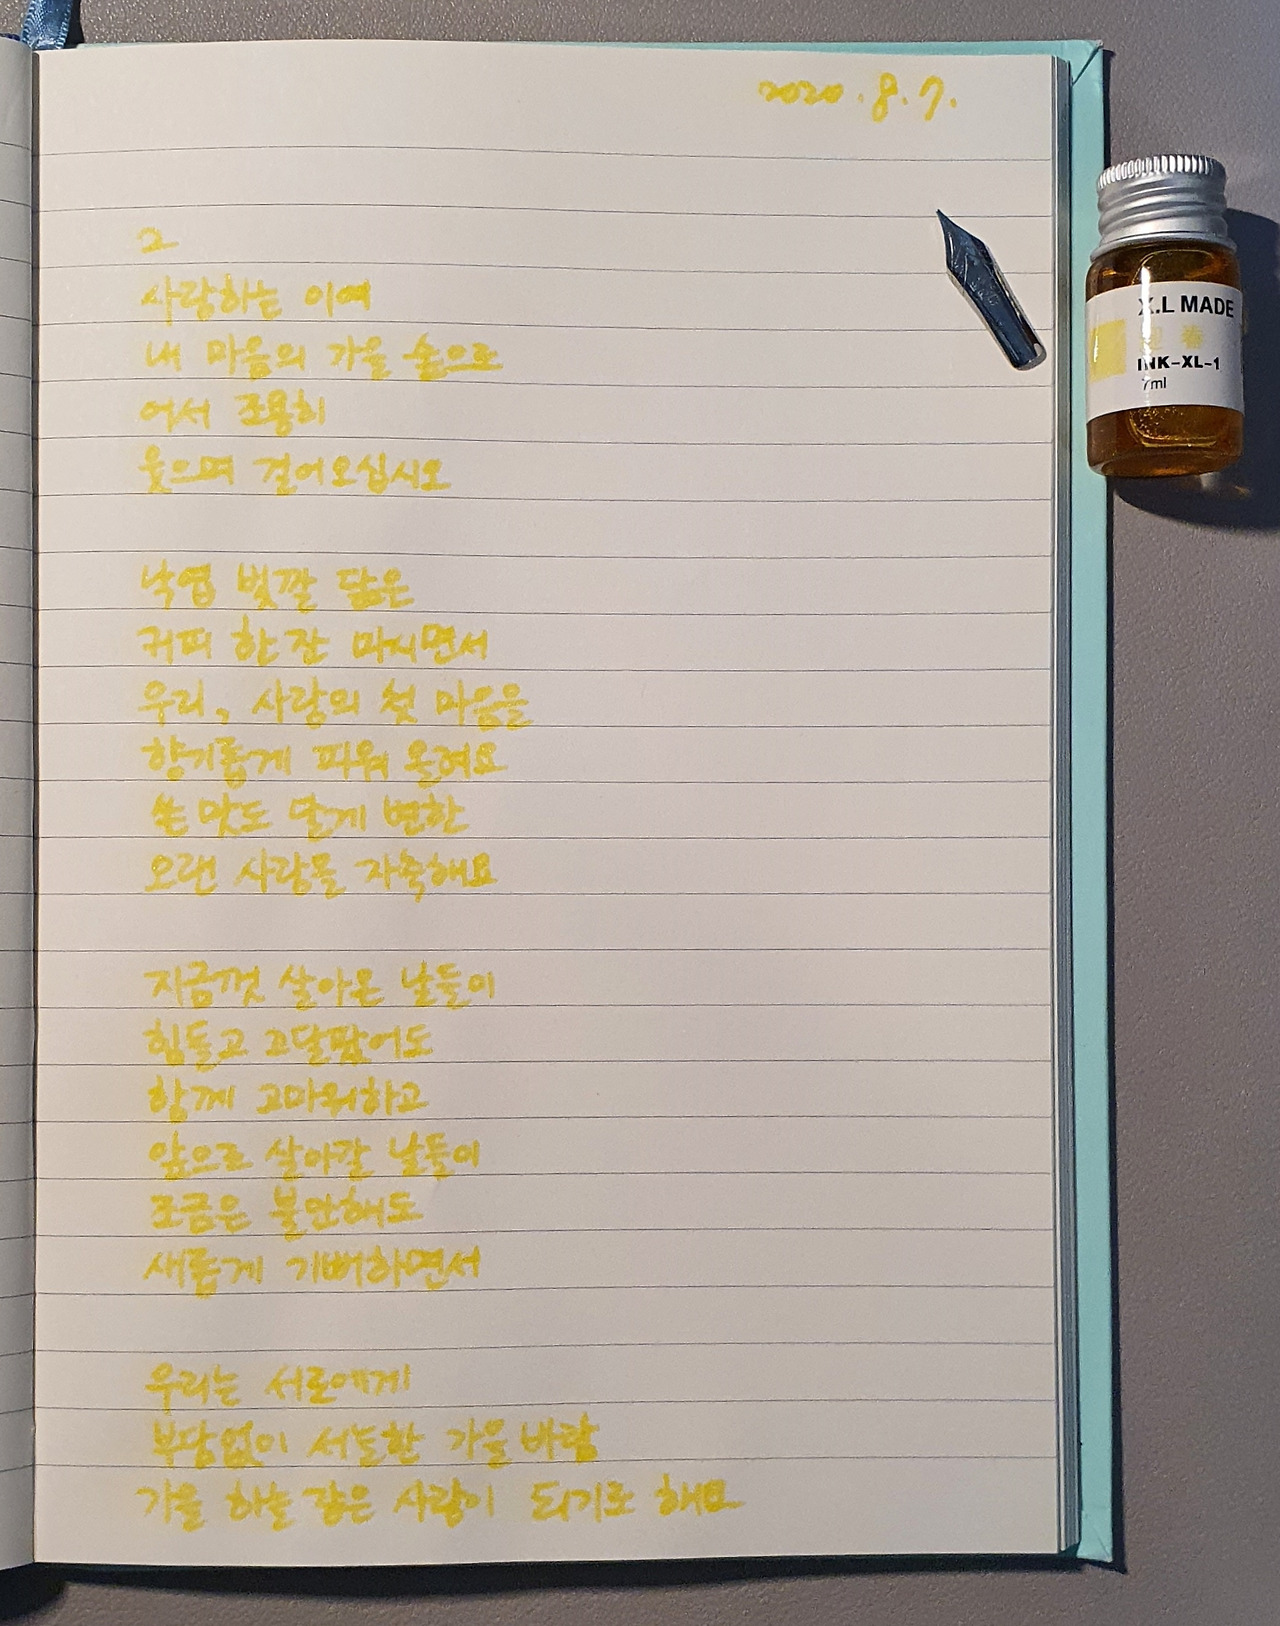 2020.8.7.
2
사랑하는 이여
내 마음의 가을 숲으로
어서 조용히
웃으며 걸어오십시오
낙엽 빛깔 닮은
커피 한 잔 마시면서
우리, 사랑의 첫 마음을
향기롭게 피워 올려요
쓴 맛도 달게 변한
오랜 사랑을 자축해요
지금껏 살아온 날들이
힘들고 고달팠어도
함께 고마워하고
앞으로 살아갈 날들이
조금은 불안해도
새롭게 기뻐하면서
우리는 서로에게
부담없이 서늘한 가을 바람
가을 하늘 같은 사람이 되기로 해요
X.L MADE
迎春
INK-XL-1
7ml